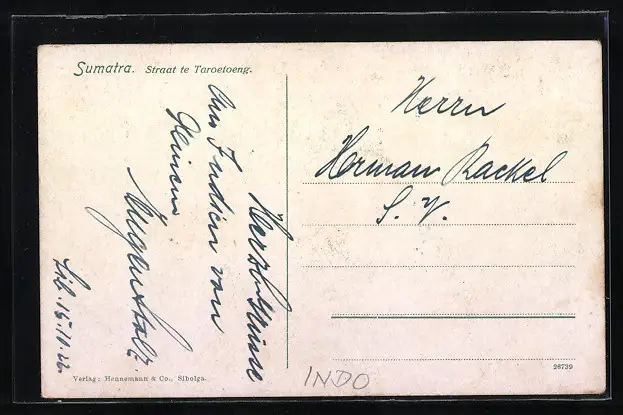 Sumatra. Straat te Taroetoeng.
Herzl. Grüsse
aus Indien von
Deinem
Herrn
Herman Rackel
S. V.
Sib. 15.11.22
Verlag: Hennemann & Co., Sibolga.
26739
INDO